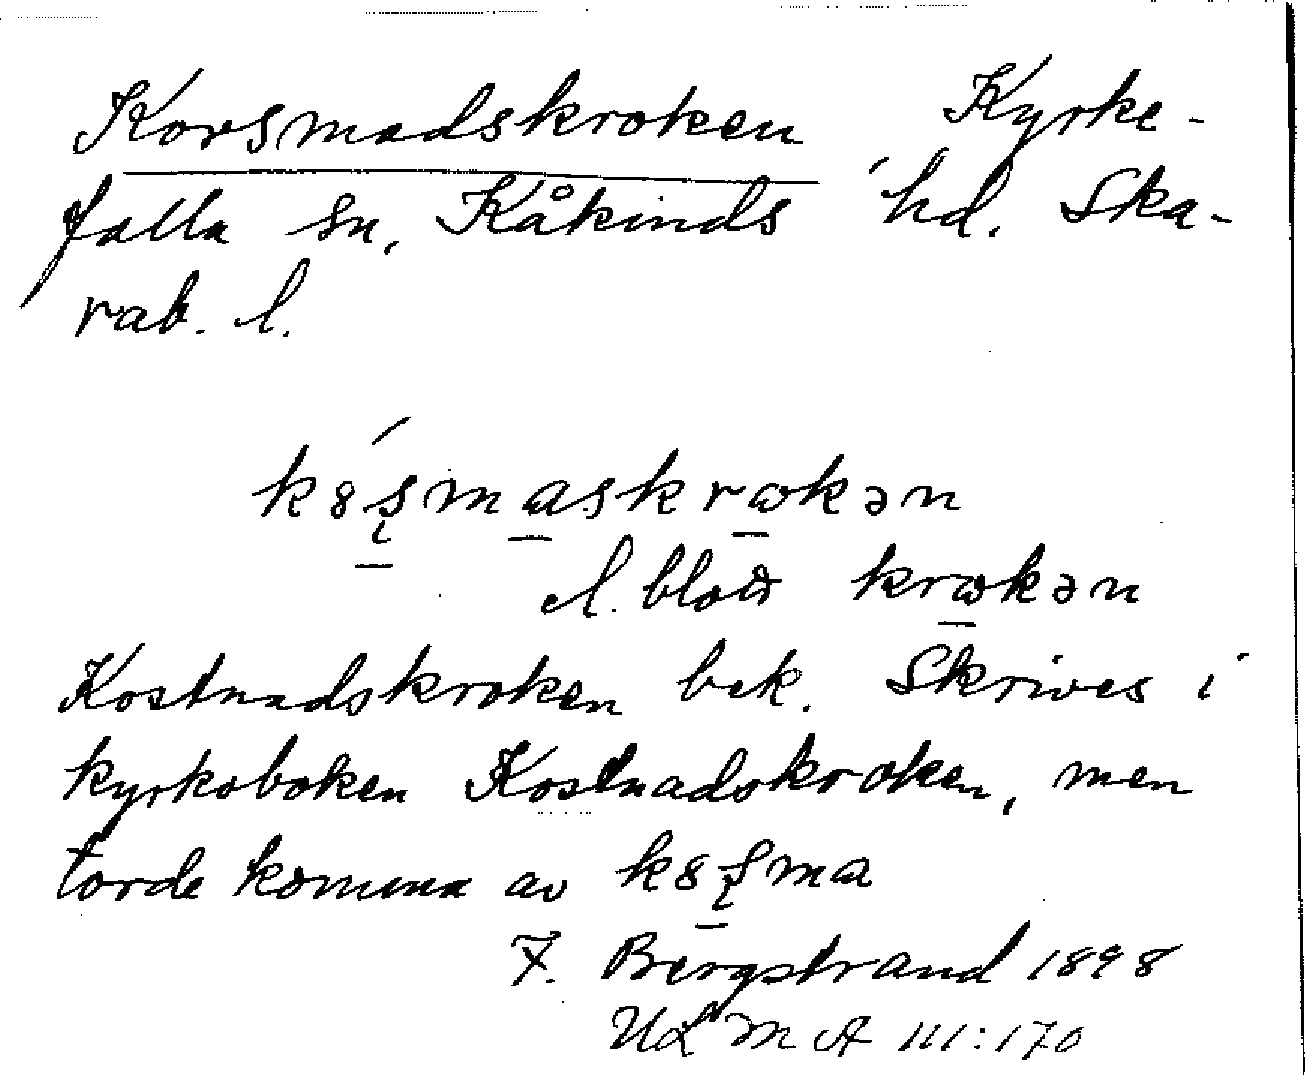 Korsmadskroken Kyrke-
falla sn, Kåkinds hd. Ska-
rab. l.
kȣ́s̨maskrωkən
l. blott krωkən
Kostnadskroken bek. Skrives i
kyrkoboken Kostnadskroken, men
torde komma av kȣs̨ma
F. Bergstrand 1898
ULMA 111:170